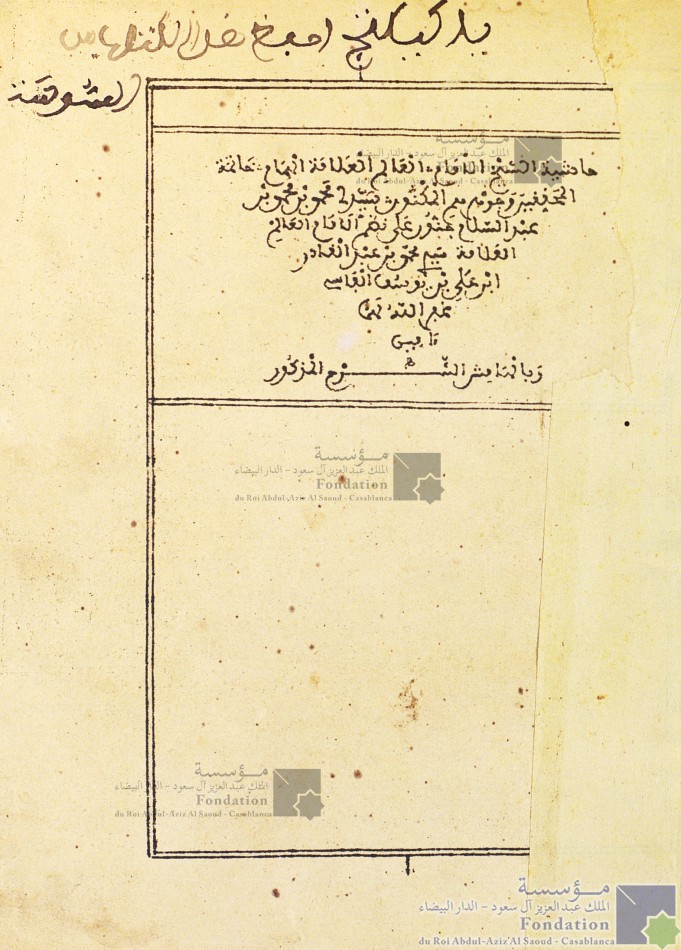 يا كبيكج احبظ هذا الكتاب من
العشو تنة
حاشية الشيخ الامام، العالم العلامة الهمام، خاتمة
المحققين وحوس سيدي محمد بن محمد بن
عبد السلام جنون على نظم الامام العالم
العلامة سيدي محمد بن عبد القادر
ابن علي بن يوسف الفاسي
نفع الله بهما
ءامين
وبالهامش الشرح المذكور
مؤسسة
الملك عبد العزيز آل سعود - الدار البيضاء
Fondation
du Roi Abdul-Aziz Al Saoud - Casablanca
مؤسسة
الملك عبد العزيز آل سعود - الدار البيضاء
Fondation
du Roi Abdul-Aziz Al Saoud - Casablanca
مؤسسة
الملك عبد العزيز آل سعود - الدار البيضاء
Fondation
du Roi Abdul-Aziz Al Saoud - Casablanca
مؤسسة
الملك عبد العزيز آل سعود - الدار البيضاء
Fondation
du Roi Abdul-Aziz Al Saoud - Casablanca